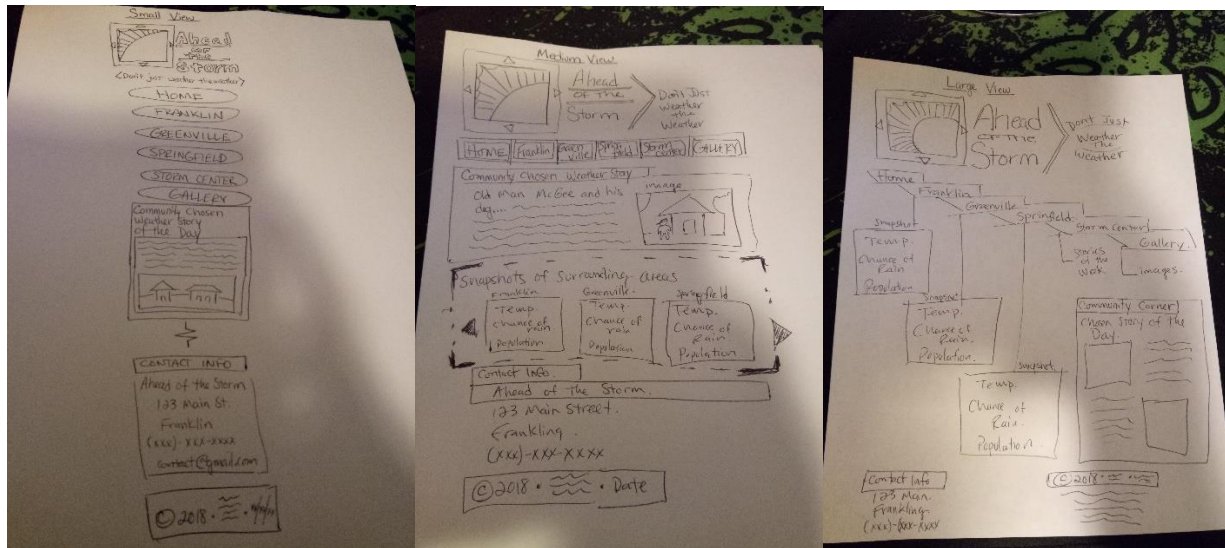 Small View
Ahead
OF THE
Storm
<Don't just weather the weather>
HOME
FRANKLIN
GREENVILLE
SPRINGFIELD
STORM CENTER
GALLERY
Community Chosen
Weather Story
of the Day
CONTACT INFO
Ahead of the Storm
123 Main St.
Franklin
(xxx)-xxx-xxxx
contact@gmail.com
©2018 • • ##/##/##
Medium View
Ahead
OF The
Storm
Don't Just
Weather
the
Weather
HOME Franklin Greenville Springfield Storm center GALLERY
Community Chosen Weather Story
Old Man McGee and his
dog....
image
Snapshots of Surrounding Areas
Franklin
Temp.
Chance of
rain
Population
Greenville.
Temp.
Chance of
rain
Population
Springfield
Temp.
Chance of
Rain.
Population.
Contact Info.
Ahead of The Storm.
123 Main Street.
Frankling.
(xxx)-xxx-xxxx
©2018 • • Date
Large View
Ahead
OF THE
Storm
Dont Just
Weather
The
Weather
Home
Franklin
Greenville
Sprinfield
Storm Center
Gallery
Stories
of the
Week
images.
Snapshot
Temp.
Chance of
Rain
Population
Snapshot
Temp.
Chance of
Rain.
Population.
Snapshot
Temp.
Chance of
Rain.
Population.
Community Corner
Chosen Story of the
Day.
Contact Info
123 Main.
Frankling.
(xxx)-xxx-xxxx
©2018 • •